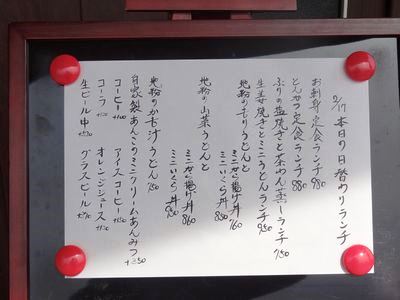 2/17 本日の日替わりランチ
お刺身定食ランチ 980
とんかつ定食ランチ 880
ぶりの塩焼きと茶わん蒸しランチ 950
生姜焼きとミニうどんランチ 950
地粉の
うどんと
ミニから揚げ丼 760
ミニいくら丼 850
地粉の山菜うどんと
ミニから揚げ丼 860
ミニいくら丼 950
地粉のかき汁うどん 750
自家製あんこのミニクリームあんみつ +250
コーヒー +100
アイスコーヒー +150
コーラ +150
オレンジジュース +150
生ビール中 +450
グラスビール